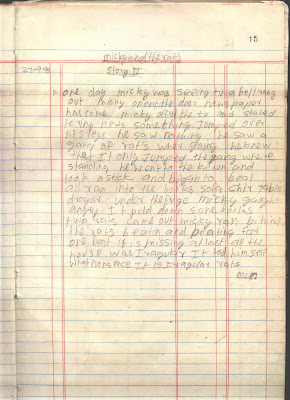 15
micky and the rats
Story IV
one day micky was seeing t.v a bell rung
out micky opent the door news paper
has come micky off the tv and stated
reying news something Jumped over
his legs he saw nothing he saw a
gang of rats wher going he knew
that it only Jumped the gang where
standing he went to the kitchen and
took a stick and began to beat
all ran into the house sofa chir table
drayar under the frige micky gaught
angry I t puld down some
rats came out micky ran behind
the rats beatin and beating for
one beat it is missing at last all the
house was Iragular I t told himself
what nonsence It is Iragular rats